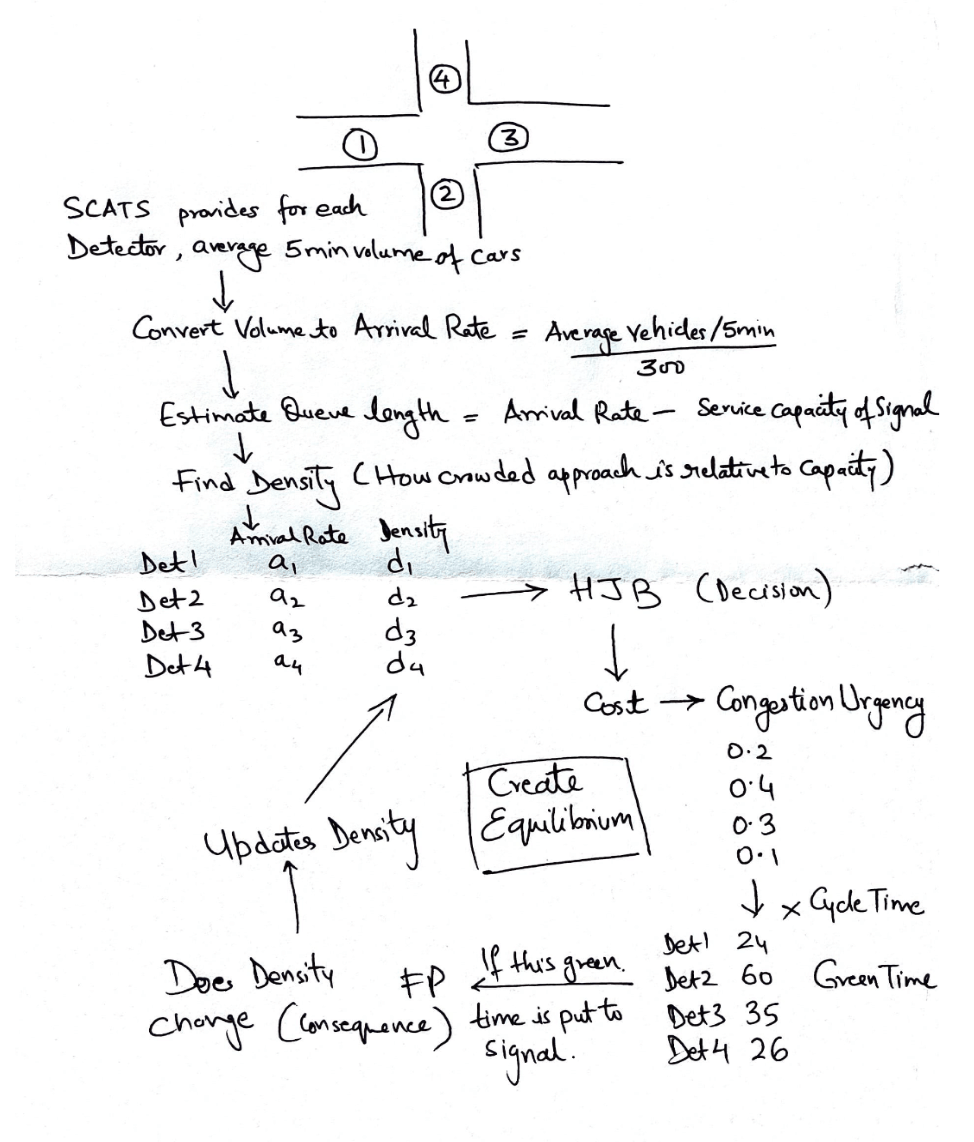 ④
① ③
②
SCATS provides for each
Detector, average 5min volume of cars
↓
Convert Volume to Arrival Rate = Average Vehicles/5min
300
↓
Estimate Queue length = Arrival Rate — Service capacity of Signal
↓
Find Density (How crowded approach is relative to capacity)
↓
Arrival Rate Density
Det1 a₁ d₁
Det2 a₂ d₂ → HJB (Decision)
Det3 a₃ d₃ ↓
Det4 a₄ d₄
Cost → Congestion Urgency
0.2
Create 0.4
Updates Density Equilibrium 0.3
0.1
↓ × Cycle Time
Det1 24
Does Density FP If this green Det2 60 Green Time
change (Consequence) time is put to Det3 35
signal. Det4 26